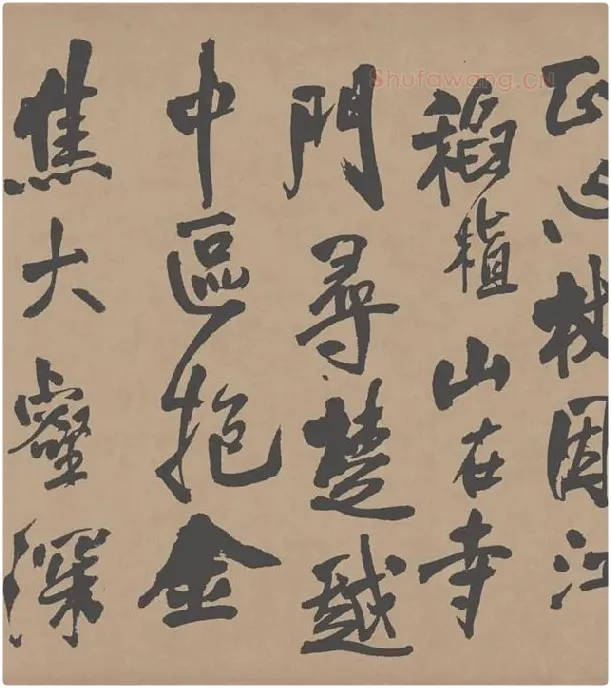 Shufawang.CN
杖因江
稻山在寺
門尋楚越
中區抱金
焦大壑深